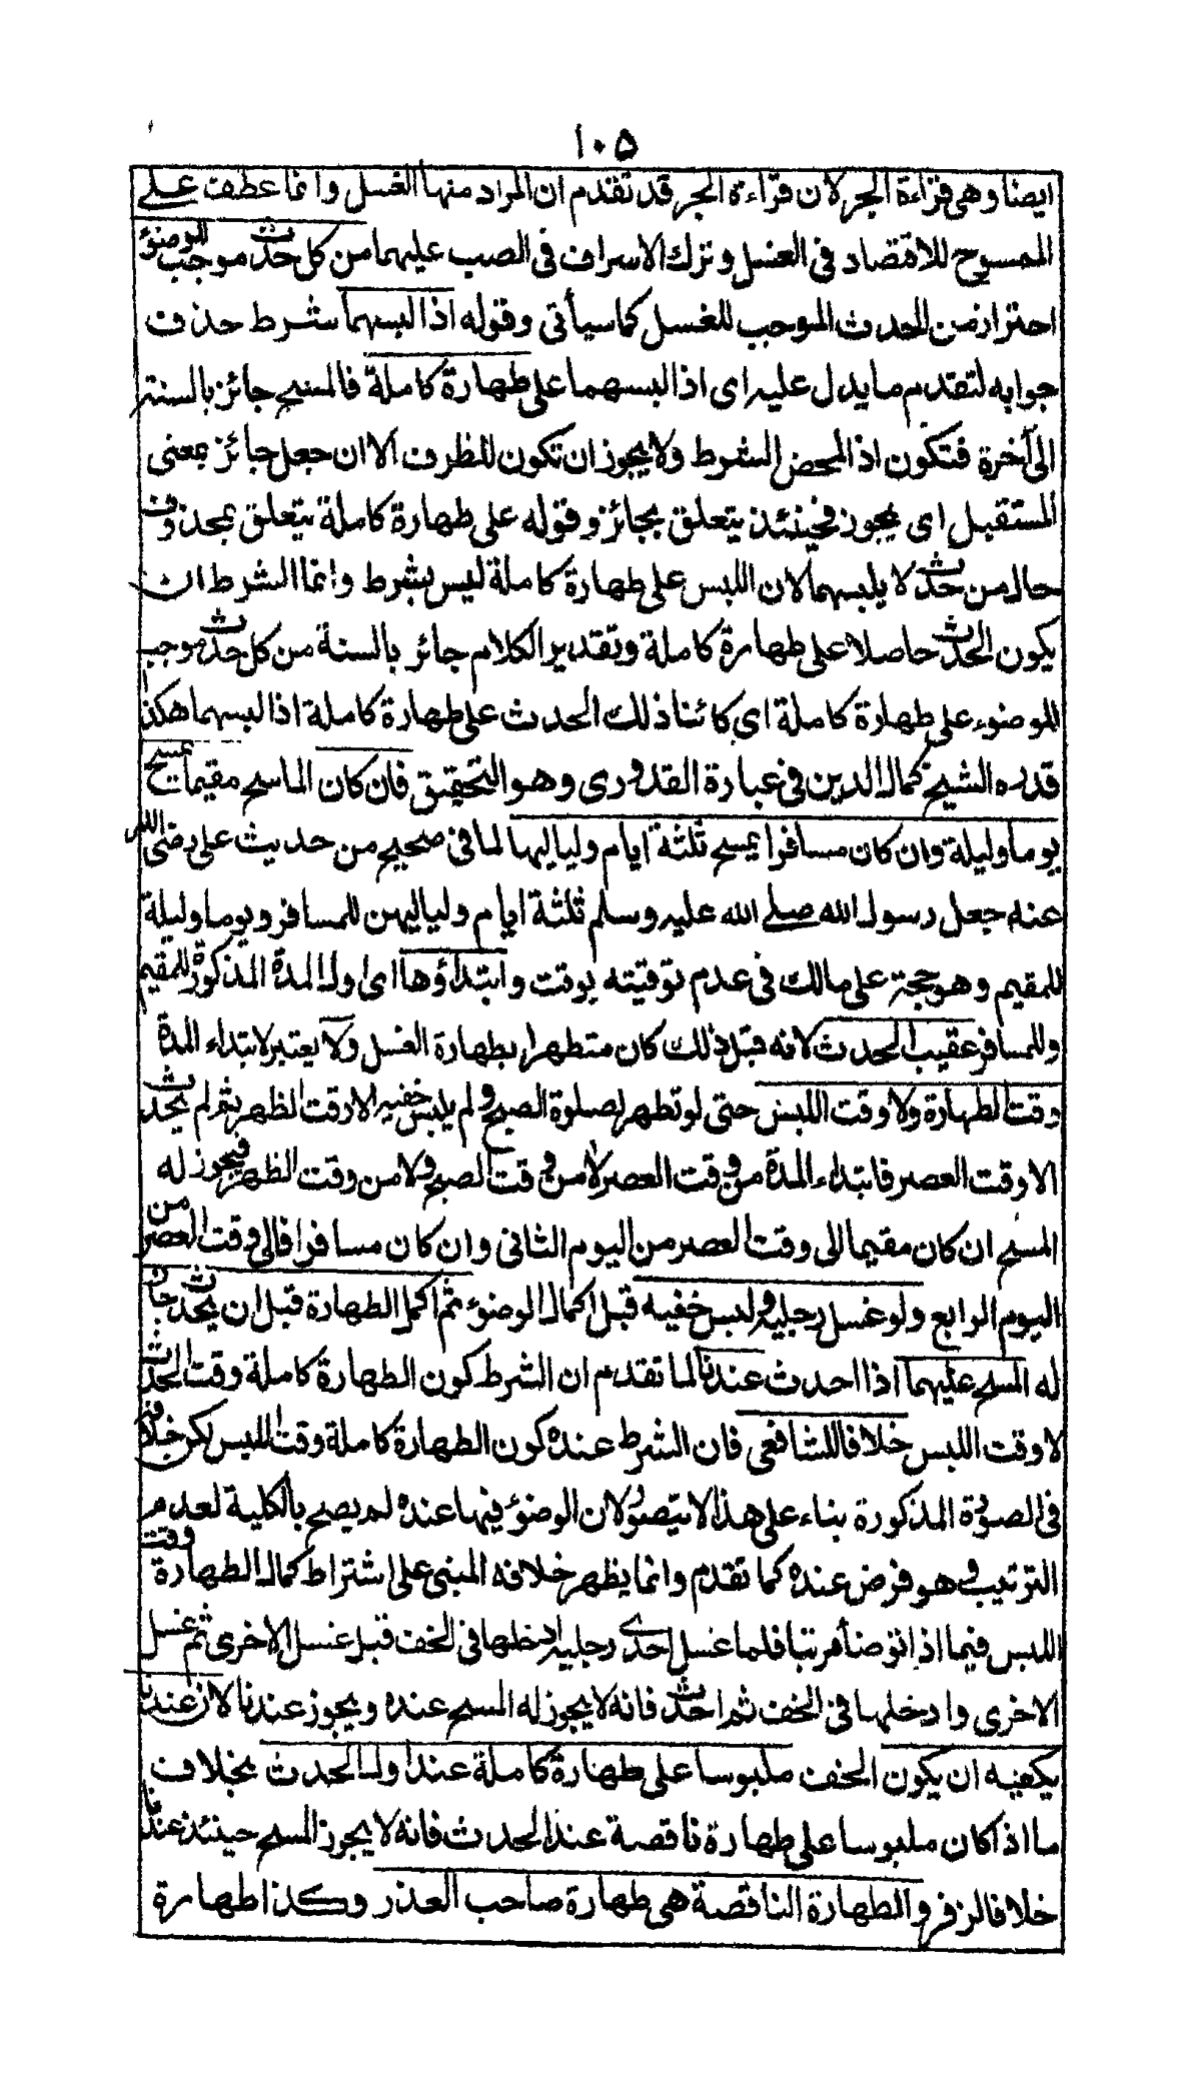 ١٠٥
ايضا وهى قراءة الجر لان قراءة الجر قد تقدم ان المراد منها الغسل وانما عطفت على
الممسوح للاقتصاد فى الغسل وترك الاسراف فى الصب عليهما من كل حدث موجب للوضوء
احتراز من الحدث الموجب للغسل كما سيأتى وقوله اذا لبسهما شرط حذف
جوابه لتقدم ما يدل عليه اى اذا لبسهما على طهارة كاملة فالمسح جائز بالسنة
الى آخره فتكون اذا لمحض الشرط ولا يجوز ان تكون للظرف الا ان جعل جائز بمعنى
المستقبل اى يجوز فحينئذ يتعلق بجائز وقوله على طهارة كاملة يتعلق بمحذوف
حال من حدث لا يلبسهما لان اللبس على طهارة كاملة ليس بشرط وانما الشرط ان
يكون الحدث حاصلا على طهارة كاملة وتقدير الكلام جائز بالسنة من كل حدث موجب
للوضوء على طهارة كاملة اى كائنا ذلك الحدث على طهارة كاملة اذا لبسهما هكذا
قدره الشيخ كمال الدين فى عبارة القدورى وهو التحقيق فان كان الماسح مقيما يمسح
يوما وليلة وان كان مسافرا يمسح ثلثة ايام ولياليها لما فى صحيح من حديث على رضى الله
عنه جعل رسول الله صلى الله عليه وسلم ثلثة ايام ولياليهن للمسافر ويوما وليلة
للمقيم وهو حجة على مالك فى عدم توقيته بوقت وابتداؤها اى اول المدة المذكورة للمقيم
وللمسافر عقيب الحدث لانه قبل ذلك كان متطهرا بطهارة الغسل ولا يعتبر لابتداء المدة
وقت الطهارة ولا وقت اللبس حتى لو تطهر لصلوة الصبح ولم يلبس خفيه الا وقت الظهر ثم لم يحدث
الا وقت العصر فابتداء المدة من وقت العصر لا من وقت الصبح ولا من وقت الظهر فيجوز له
المسح ان كان مقيما الى وقت العصر من اليوم الثانى وان كان مسافرا فالى وقت العصر من
اليوم الرابع ولو غسل رجليه ولبس خفيه قبل اكمال الوضوء ثم اكمل الطهارة قبل ان يحدث جاز
له المسح عليهما اذا احدث عندنا لما تقدم ان الشرط كون الطهارة كاملة وقت الحدث
لا وقت اللبس خلافا للشافعى فان الشرط عنده كون الطهارة كاملة وقت اللبس لكن خلافه
فى الصورة المذكورة بناء على هذا لا يتصور لان الوضوء فيها عنده لم يصح بالكلية لعدم
الترتيب وهو فرض عنده كما تقدم وانما يظهر خلافه المبنى على اشتراط كمال الطهارة وقت
اللبس فيما اذا توضأ مرتبا فلما غسل احدى رجليه ادخلها فى الخف قبل غسل الاخرى ثم غسل
الاخرى وادخلها فى الخف ثم احدث فانه لا يجوز له المسح عنده ويجوز عندنا لان عندنا
يكفيه ان يكون الخف ملبوسا على طهارة كاملة عند اول الحدث بخلاف
ما اذا كان ملبوسا على طهارة ناقصة عند الحدث فانه لا يجوز المسح حينئذ عندنا
خلافا لزفر والطهارة الناقصة هى طهارة صاحب العذر وكذا طهارة